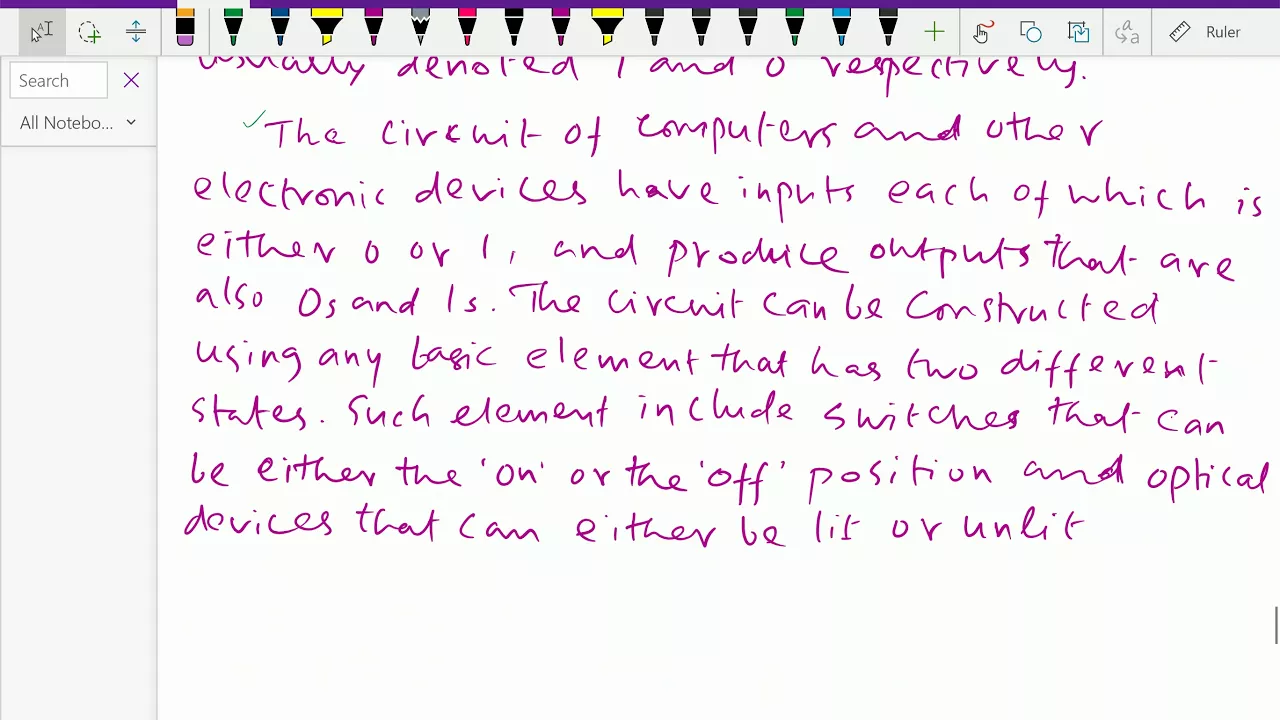 Ruler
Search
All Notebo...
usually denoted 1 and 0 respectively.
The circuit of computers and other
electronic devices have inputs each of which is
either 0 or 1, and produce outputs that are
also 0s and 1s. The circuit can be constructed
using any basic element that has two different
states. Such element include switches that can
be either the 'on' or the 'off' position and optical
devices that can either be lit or unlit